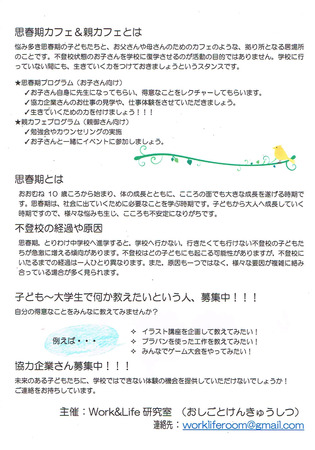 思春期カフェ＆親カフェとは
悩み多き思春期の子どもたちと、お父さんや母さんのためのカフェのような、拠り所となる居場所
のことです。不登校状態のお子さんを学校に復学させるのが活動の目的ではありません。学校に行
っていない間にも、生きていく力をつけておきましょうというスタンスです。
★思春期プログラム（お子さん向け）
✓お子さん自身に先生になってもらい、得意なことをレクチャーしてもらいます。
✓協力企業さんのお仕事の見学や、仕事体験をさせていただきましょう。
✓生きていくための力を付けましょう！！！
★親カフェプログラム（親御さん向け）
✓勉強会やカウンセリングの実施
✓お子さんと一緒にイベントに参加しましょう。
思春期とは
おおむね 10 歳ころから始まり、体の成長とともに、こころの面でも大きな成長を遂げる時期で
す。思春期は、社会に出ていくために必要なことを学ぶ時期です。子どもから大人へ成長していく
時期ですので、様々な悩みも生じ、こころも不安定になりがちです。
不登校の経過や原因
思春期、とりわけ中学校へ進学すると、学校へ行かない、行きたくても行けない不登校の子どもた
ちが急激に増える傾向があります。不登校はどの子どもにも起こる可能性がありますが、不登校に
いたるまでの経過は一人ひとり異なります。また、原因も一つではなく、様々な要因が複雑に絡み
合っている場合が多く見られます。
子ども～大学生で何か教えたいという人、募集中！！！
自分の得意なことをみんなに教えてみませんか？
例えば・・・
➢ イラスト講座を企画して教えてみたい！
➢ プラバンを使った工作を教えてみたい！
➢ みんなでゲーム大会をやってみたい！
協力企業さん募集中！！！
未来のある子どもたちに、学校ではできない体験の機会を提供していただけないでしょうか！
ご連絡をお待ちしています。
主催：Work&Life 研究室 （おしごとけんきゅうしつ）
連絡先：workliferoom@gmail.com